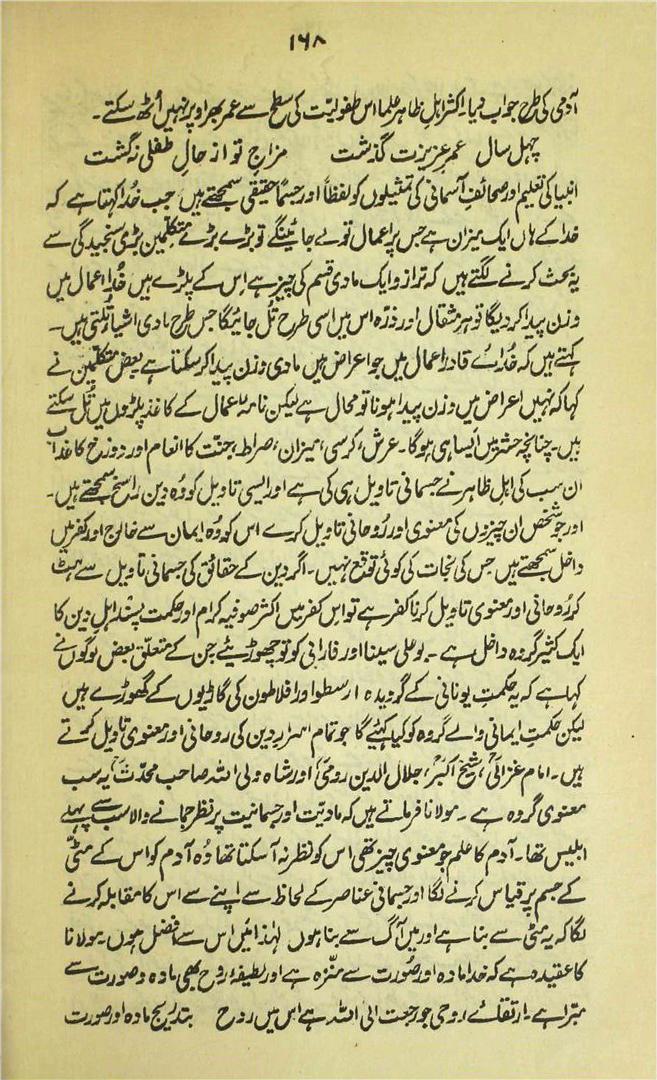 ۱۶۸
آدمی کی طرح جواب دیا۔ اکثر اہلِ ظاہر علما اس طفولیّت کی سطح سے عمر بھر اوپر نہیں اُٹھ سکتے۔
چہل سال عمرِ عزیزت گذشت مزاجِ تو از حالِ طفلی نہ گشت
انبیا کی تعلیم اور صحائفِ آسمانی کی تمثیلوں کو لفظاً اور جسماً حقیقی سمجھتے ہیں جب خُدا کہتا ہے کہ
خدا کے ہاں ایک میزان ہے جس پر اعمال تولے جائینگے تو بڑے بڑے متکلمین بڑی سنجیدگی سے
یہ بحث کرنے لگتے ہیں کہ ترازو ایک مادی قسم کی چیز ہے اس کے پلڑے ہیں خُدا اعمال میں
وزن پیدا کر دیگا تو ہر مثقال اور ذرّہ اس میں اسی طرح تُل جائیگا جس طرح مادی اشیا تُلتی ہیں۔
کہتے ہیں کہ خُدائے قادر اعمال میں جو اعراض ہیں مادی وزن پیدا کر سکتا ہے بعض متکلمین نے
کہا کہ نہیں اعراض میں وزن پیدا ہونا تو محال ہے لیکن نامہ اعمال کے کاغذ پلڑوں میں تُل سکتے
ہیں۔ چنانچہ حشر میں ایسا ہی ہوگا۔ عرش، کرسی، میزان، صراط، جنّت کا انعام اور دوزخ کا عذاب
ان سب کی اہلِ ظاہر نے جسمانی تاویل ہی کی ہے اور ایسی تاویل کو وُہ دین راسخ سمجھتے ہیں۔
اور جو شخص ان چیزوں کی معنوی اور رُوحانی تاویل کرے اس کو وُہ ایمان سے خالج اور کفر میں
داخل سمجھتے ہیں جس کی نجات کی کوئی توقع نہیں۔ اگر دین کے حقائق کی جسمانی تاویل سے ہٹ
کر رُوحانی اور معنوی تاویل کرنا کفر ہے تو اس کفر میں اکثر صوفیہ کرام اور حکمت پسند اہلِ دین کا
ایک کثیر گروہ داخل ہے۔ بو علی سینا اور فارابی کو تو چھوڑیئے جن کے متعلق بعض لوگوں نے
کہا ہے کہ یہ حکمتِ یونانی کے گرویدہ ارسطو اور افلاطون کی گاڑیوں کے گھوڑے ہیں
لیکن حکمتِ ایمانی والے گروہ کو کیا کہیئے گا جو تمام اسرارِ دین کی روحانی اور معنوی تاویل کرتے
ہیں۔ امام غزالیؒ، شیخِ اکبرؒ، جلال الدین رومیؒ اور شاہ ولی اللہ صاحب محدّثؒ یہ سب
معنوی گروہ ہے۔ مولانا فرماتے ہیں کہ مادیّت اور جسمانیت پر نظر جمانے والا سب سے پہلے
ابلیس تھا۔ آدم کا علم جو معنوی چیز تھی اس کو نظر نہ آ سکتا تھا وُہ آدم کو اس کے مٹی
کے جسم پر قیاس کرنے لگا اور جسمانی عناصر کے لحاظ سے اپنے سے اس کا مقابلہ کرنے
لگا کہ یہ مٹی سے بنا ہے اور میں آگ سے بنا ہوں لہٰذا میں اس سے افضل ہوں۔ مولانا
کا عقیدہ ہے کہ خدا مادہ اور صُورت سے منّزہ ہے اور لطیفۂ روح بھی مادہ و صورت سے
مبّرا ہے۔ ارتقائے روحی جو رجعت الی اللہ ہے اس میں روح بتدریج مادہ اور صورت